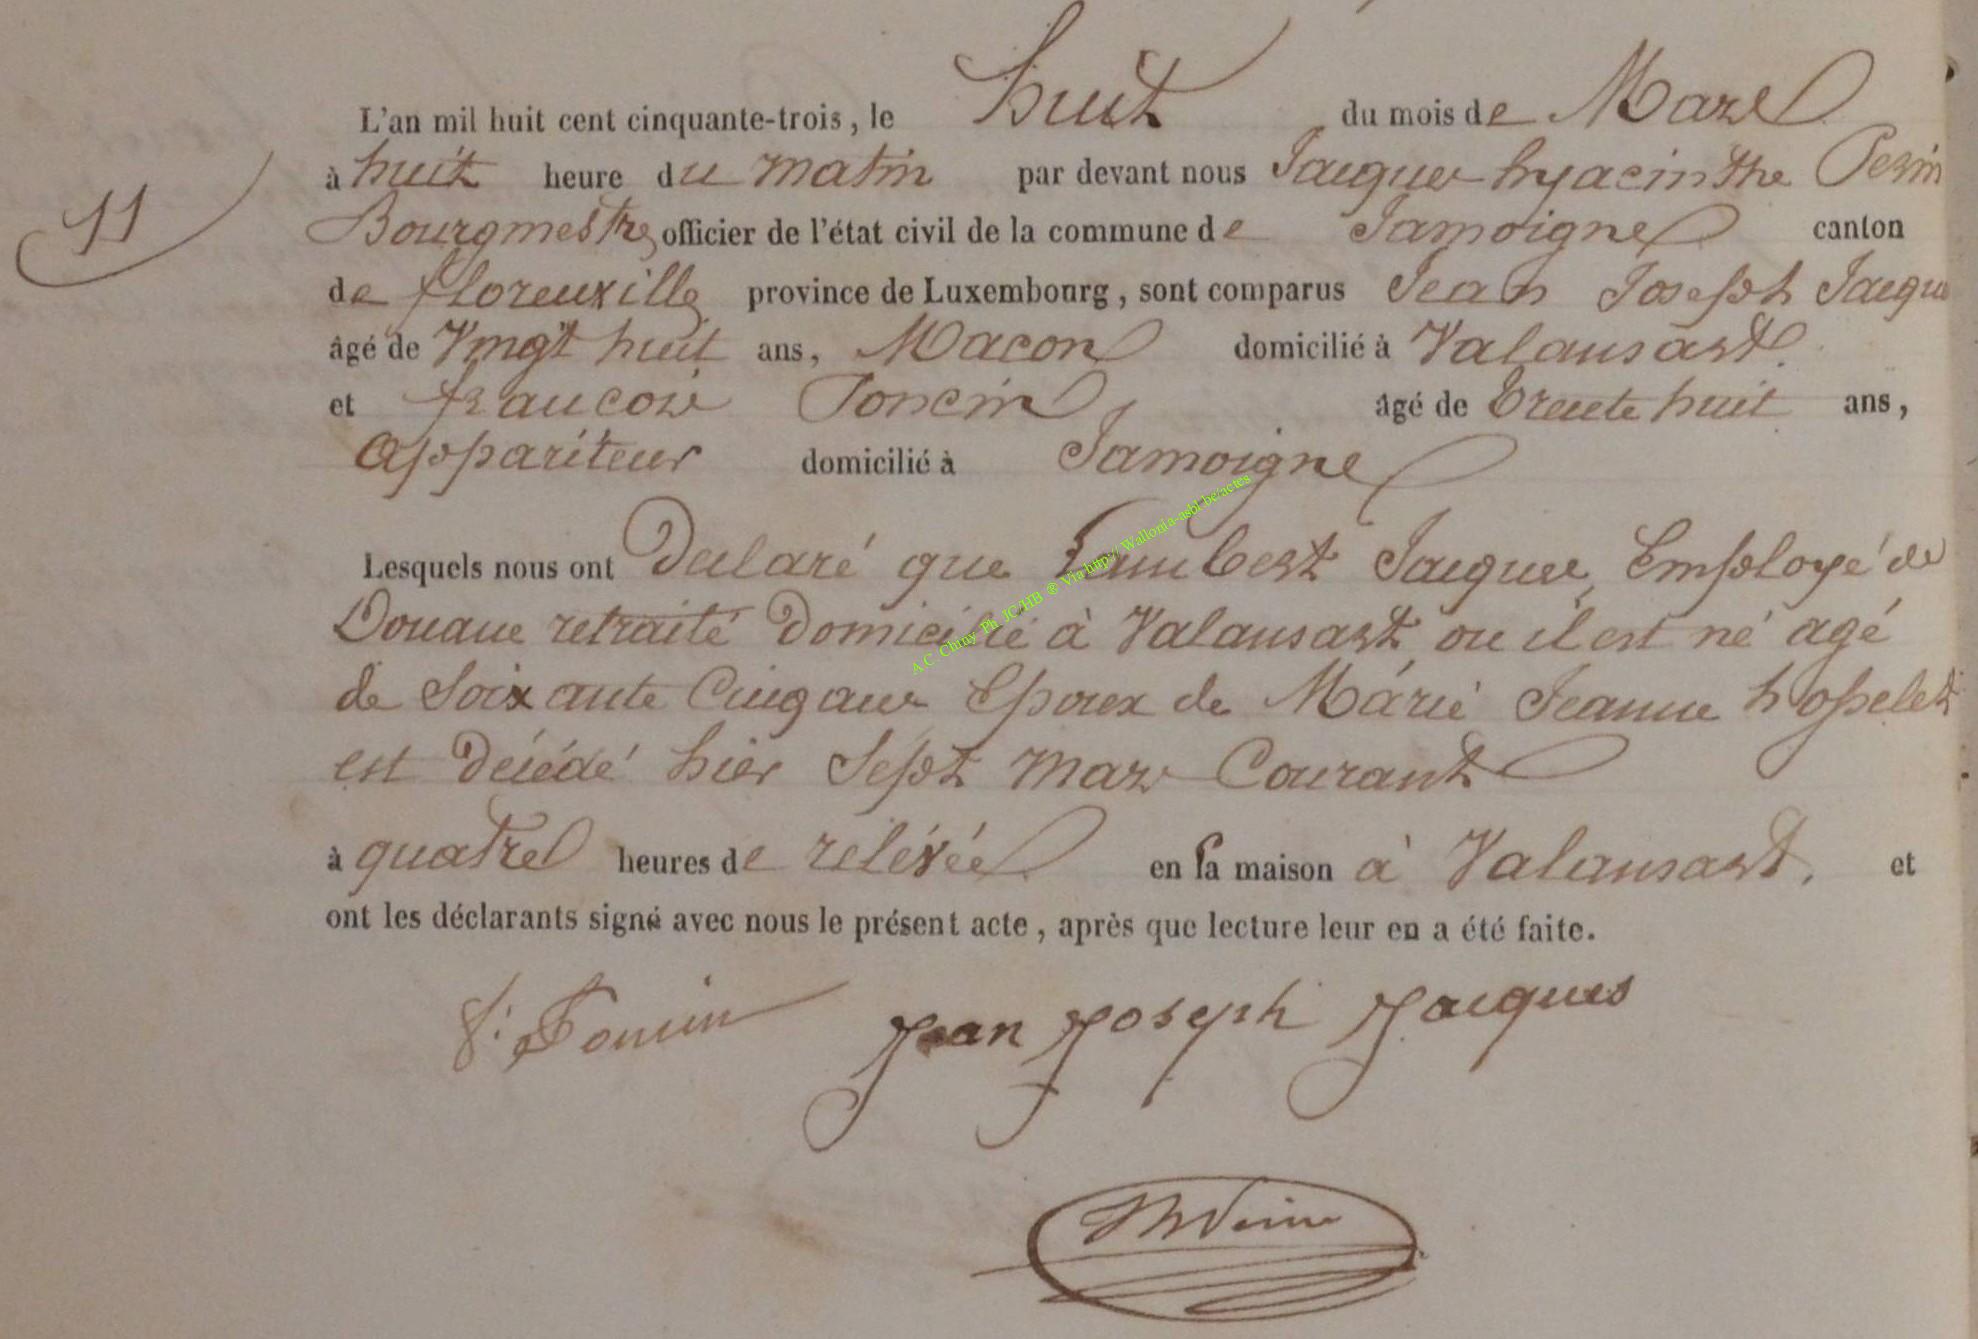 L'an mil huit cent cinquante-trois, le huit du mois de Mars
11
à huit heure du matin par devant nous Jacques hyacinthe Perin
Bourgmestre officier de l'état civil de la commune de Jamoigne canton
de florenville province de Luxembourg, sont comparus Jean Joseph Jacques
âgé de Vingt huit ans, Macon domicilié à Valansart
et francois Poncin âgé de trente huit ans,
appariteur domicilié à Jamoigne
Lesquels nous ont Déclaré que Lambert Jacques Employé de
Douane retraité Domicilié à Valansart ou il est né agé
de Soixante Cinq ans Epoux de Marie Jeanne hosselet
est Décédé hier Sept mars Courant
à quatre heures de rélévée en sa maison à Valansart, et
ont les déclarants signé avec nous le présent acte, après que lecture leur en a été faite.
f. Poncin Jean Joseph Jacques
A.C Chiny Ph JC/HB ® Via http:// Wallonia-asbl.be/actes